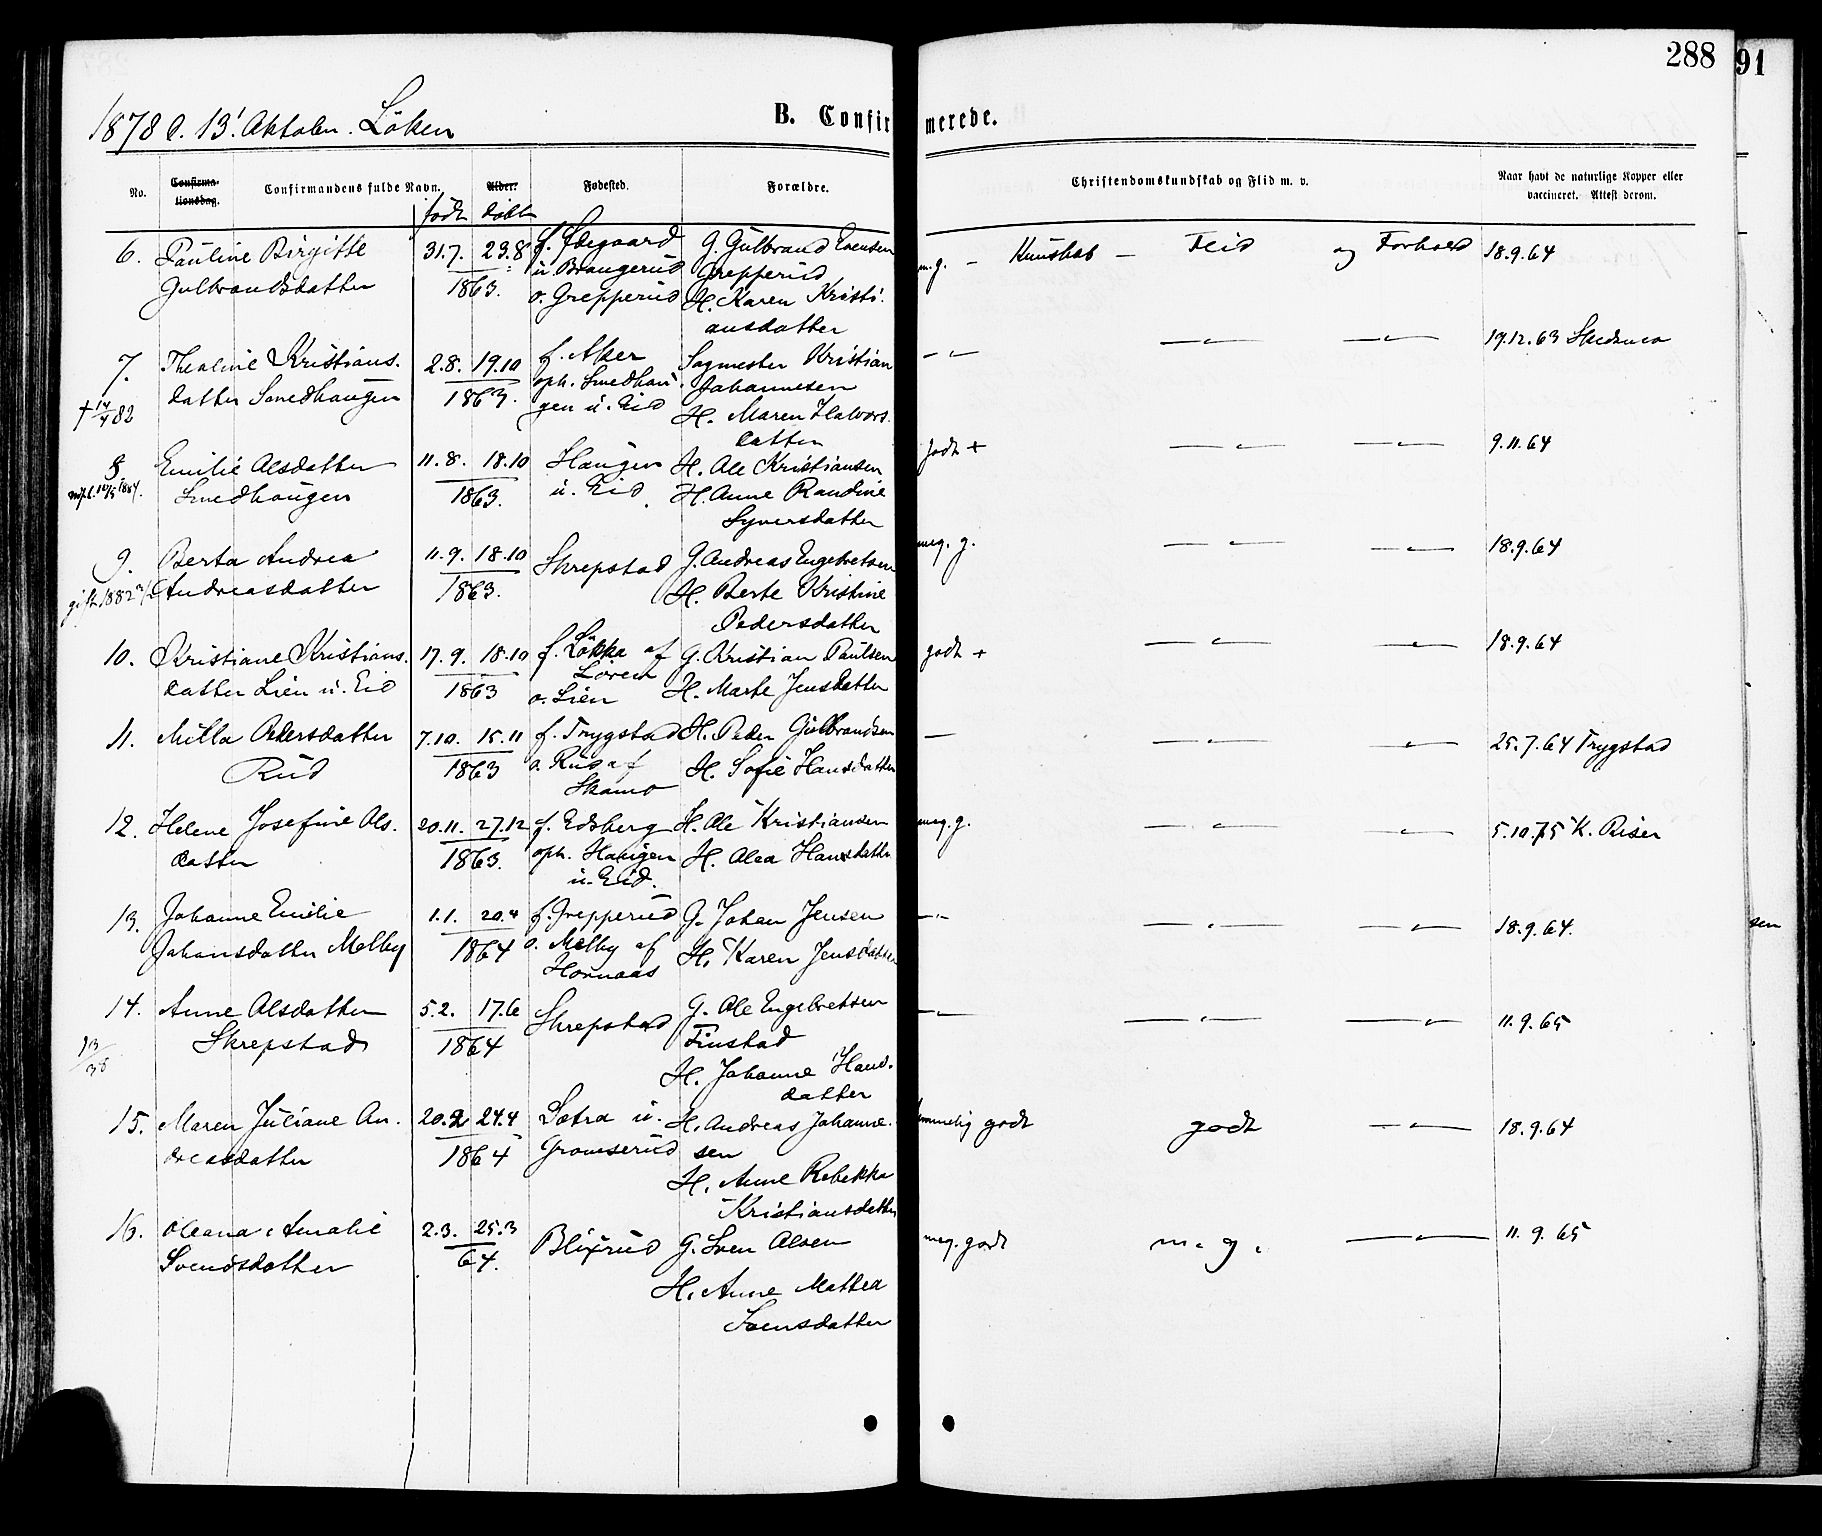 288
91
1878 d. 13' Oktober. Löken
B. Confirmerede.
No.
Confirmationsdag.
Confirmandens fulde Navn.
Alder.
Fødested.
Forældre.
Christendomskundskab og Flid m. v.
Naar havt de naturlige Kopper eller vaccineret. Attest derom.
født døbt
6. Pauline Birgitte Gulbrandsdatter
31.7. 23.8 1863.
f. Ødegaard u. Brangerud o. Grepperud
G. Gulbrand Evensen Grepperud
H. Karen Kristiansdatter
m.g. – Kunskab – Flid og Forhold
18.9.64
7. Thealine Kristiansdatter Smedhaugen
2.8. 19.10 1863.
f. Aker oph. Smedhaugen u. Eid
Sagmester Kristian Johannesen
H. Maren Halvorsdatter
19.12.63 Skedsmo
8. Emilie Olsdatter Smedhaugen
11.8. 18.10 1863.
Haugen u. Eid
H. Ole Kristiansen
H. Anne Randine Syversdatter
godt +
9.11.64
9. Berta Andrea Andreasdatter
gift 1882
11.9. 18.10 1863.
Skrepstad
G. Andreas Engebretsen
H. Berte Kristine Pedersdatter
meg. g.
18.9.64
10. Kristiane Kristiansdatter Lien u. Eid
17.9. 18.10 1863
f. Løkka af Lören o. Lien
G. Kristian Paulsen
H. Marte Jensdatter
godt +
18.9.64
11. Milla Pedersdatter Rud
7.10. 15.11 1863
f. Trygstad o. Rud af Skamo
H. Peder Gulbrandsen
H. Sofie Hansdatter
25.7.64 Trygstad
12. Helene Josefine Olsdatter
20.11. 27.12 1863.
f. Edsberg oph. Haugen u. Eid.
H. Ole Kristiansen
H. Olea Hansdatter
meg. g.
5.10.75 K. Riser
13. Johanne Emilie Johansdatter Melby
1.1. 20.4 1864
f. Grepperud o. Melby af Hornaas
G. Johan Jensen
H. Karen Jensdatter
18.9.64.
14. Anne Olsdatter Skrepstad
5.2. 17.6 1864
Skrepstad
G. Ole Engebretsen Finstad
H. Johanne Hansdatter
11.9.65
15. Maren Juliane Andreasdatter
20.2 24.4 1864
Sætra u. Gromserud
H. Andreas Johannesen
H. Anne Rebekka Kristiansdatter
temmelig godt
godt
18.9.64
16. Oleana Amalie Svendsdatter
2.3. 25.3 64.
Blixrud
G. Sven Olsen
H. Anne Mathea Svensdatter
meg. godt
m. g.
11.9.65
sen